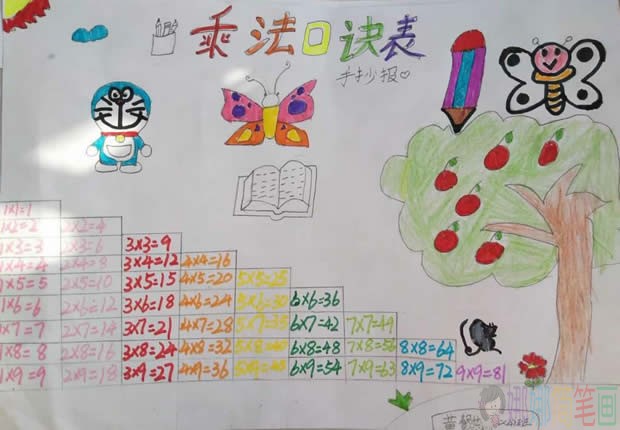 乘法口诀表
手抄报
1×1=1
1×2=2 2×2=4
1×3=3 2×3=6 3×3=9
1×4=4 2×4=8 3×4=12 4×4=16
1×5=5 2×5=10 3×5=15 4×5=20 5×5=25
1×6=6 2×6=12 3×6=18 4×6=24 5×6=30 6×6=36
1×7=7 2×7=14 3×7=21 4×7=28 5×7=35 6×7=42 7×7=49
1×8=8 2×8=16 3×8=24 4×8=32 5×8=40 6×8=48 7×8=56 8×8=64
1×9=9 2×9=18 3×9=27 4×9=36 5×9=45 6×9=54 7×9=63 8×9=72 9×9=81
笔画